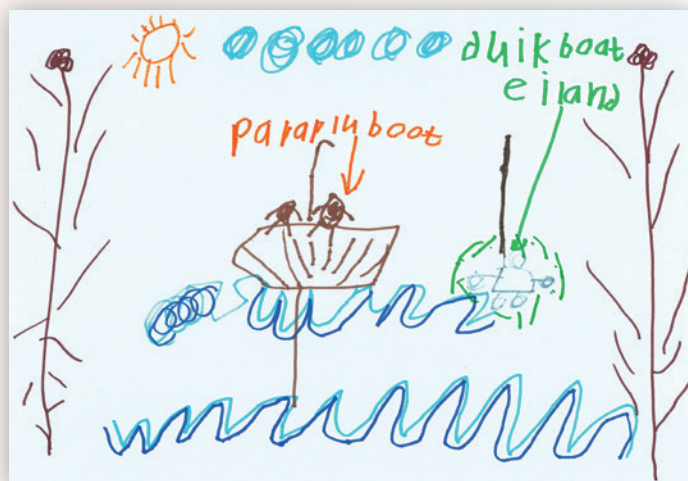 duikboat
eiland
paraplu boot